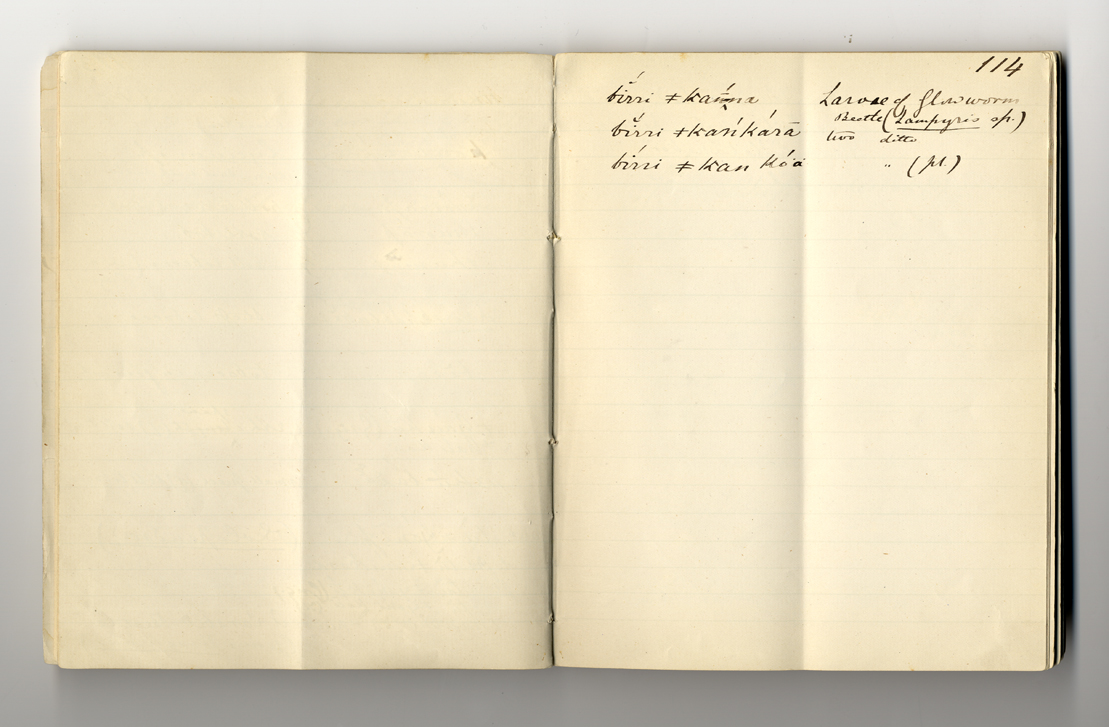 114
bĭ́rri ≠kań̄na Larvae of Glowworm
Beetle (Lampyris sp.)
bĭ́rri ≠kańkárā two ditto
bírri ≠kan kóa " (pl.)